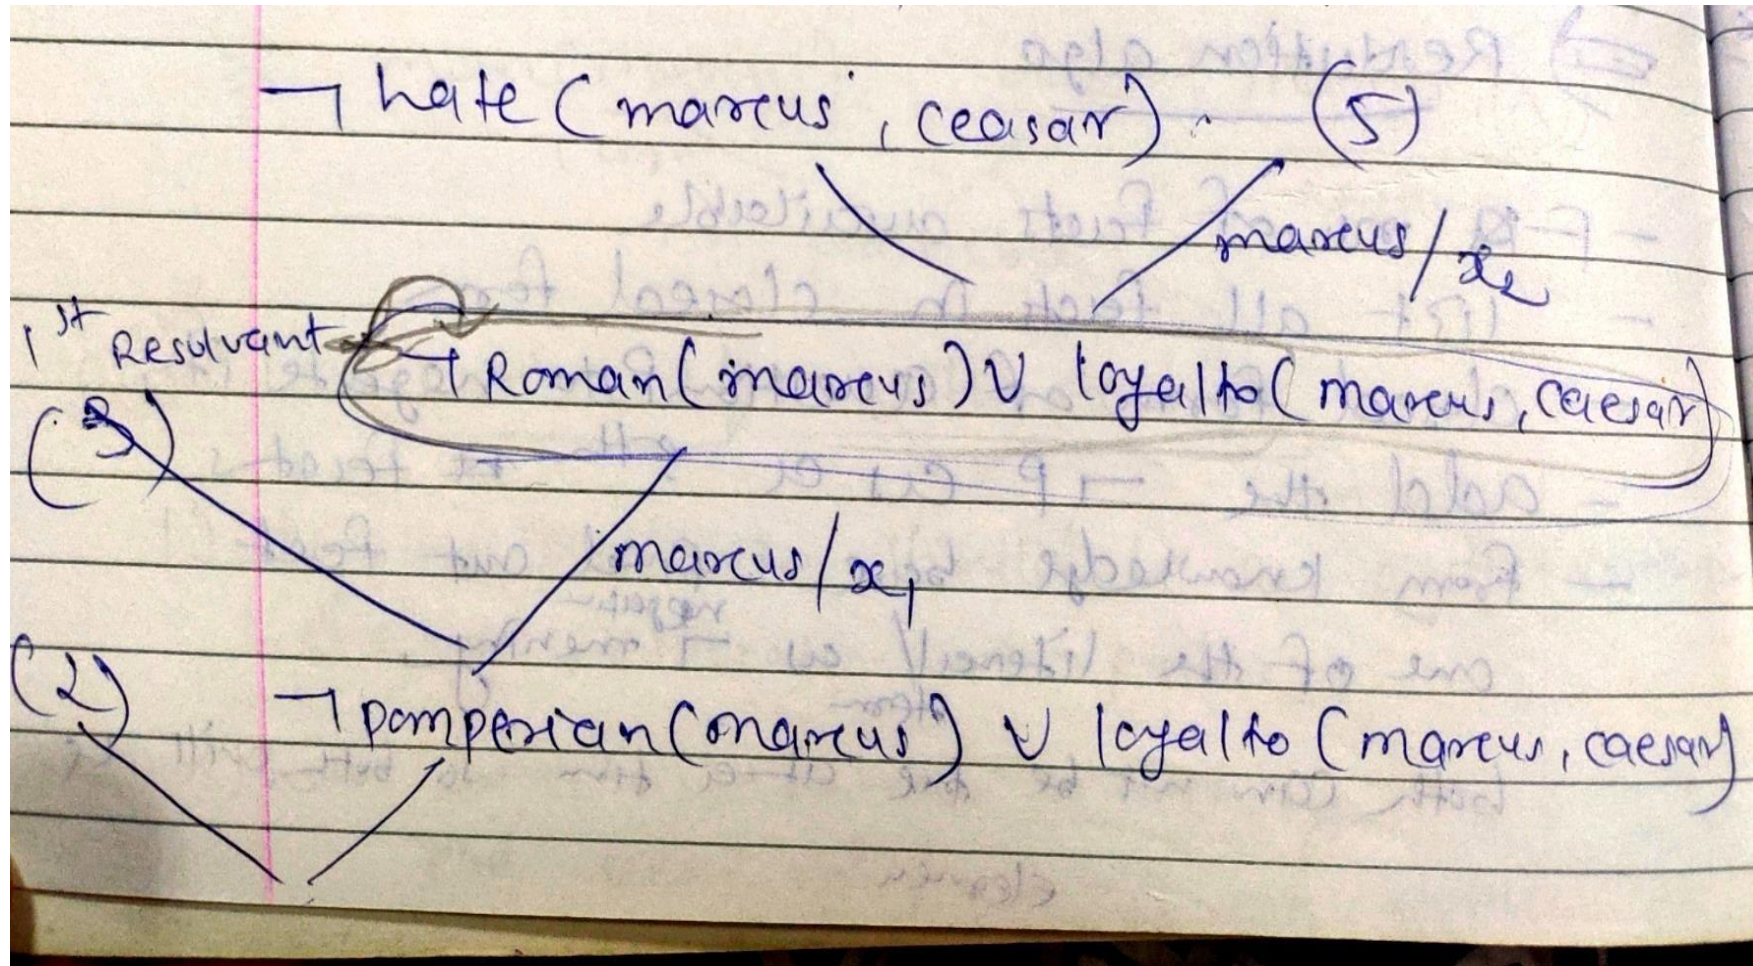 ¬ hate (marcus, ceasar). (5)
marcus/x₂
1st Resolvant
¬ Roman(marcus) ∨ loyalto(marcus, caesar)
(3)
marcus/x₁
(2) ¬ pomperian(marcus) ∨ loyalto (marcus, caesar)